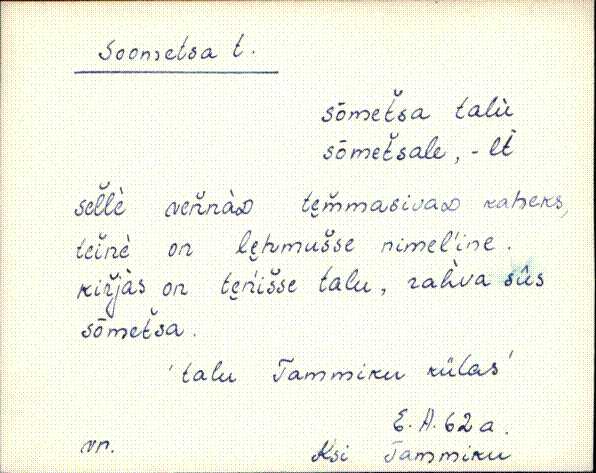 Soometsa t.
sōmetša talù
sōmetšale, -lt̀
sel̆lè ven̆nàᴅ tem̆masivaᴅ kaheks,
tein̆è on lęhmušse nimel'ine.
kir̆jàs on tęn'išse talu, rahva sûs
sōmetša.
'talu Tammiku külas'
E. A. 62 a.
vn. Ksi Tammiku